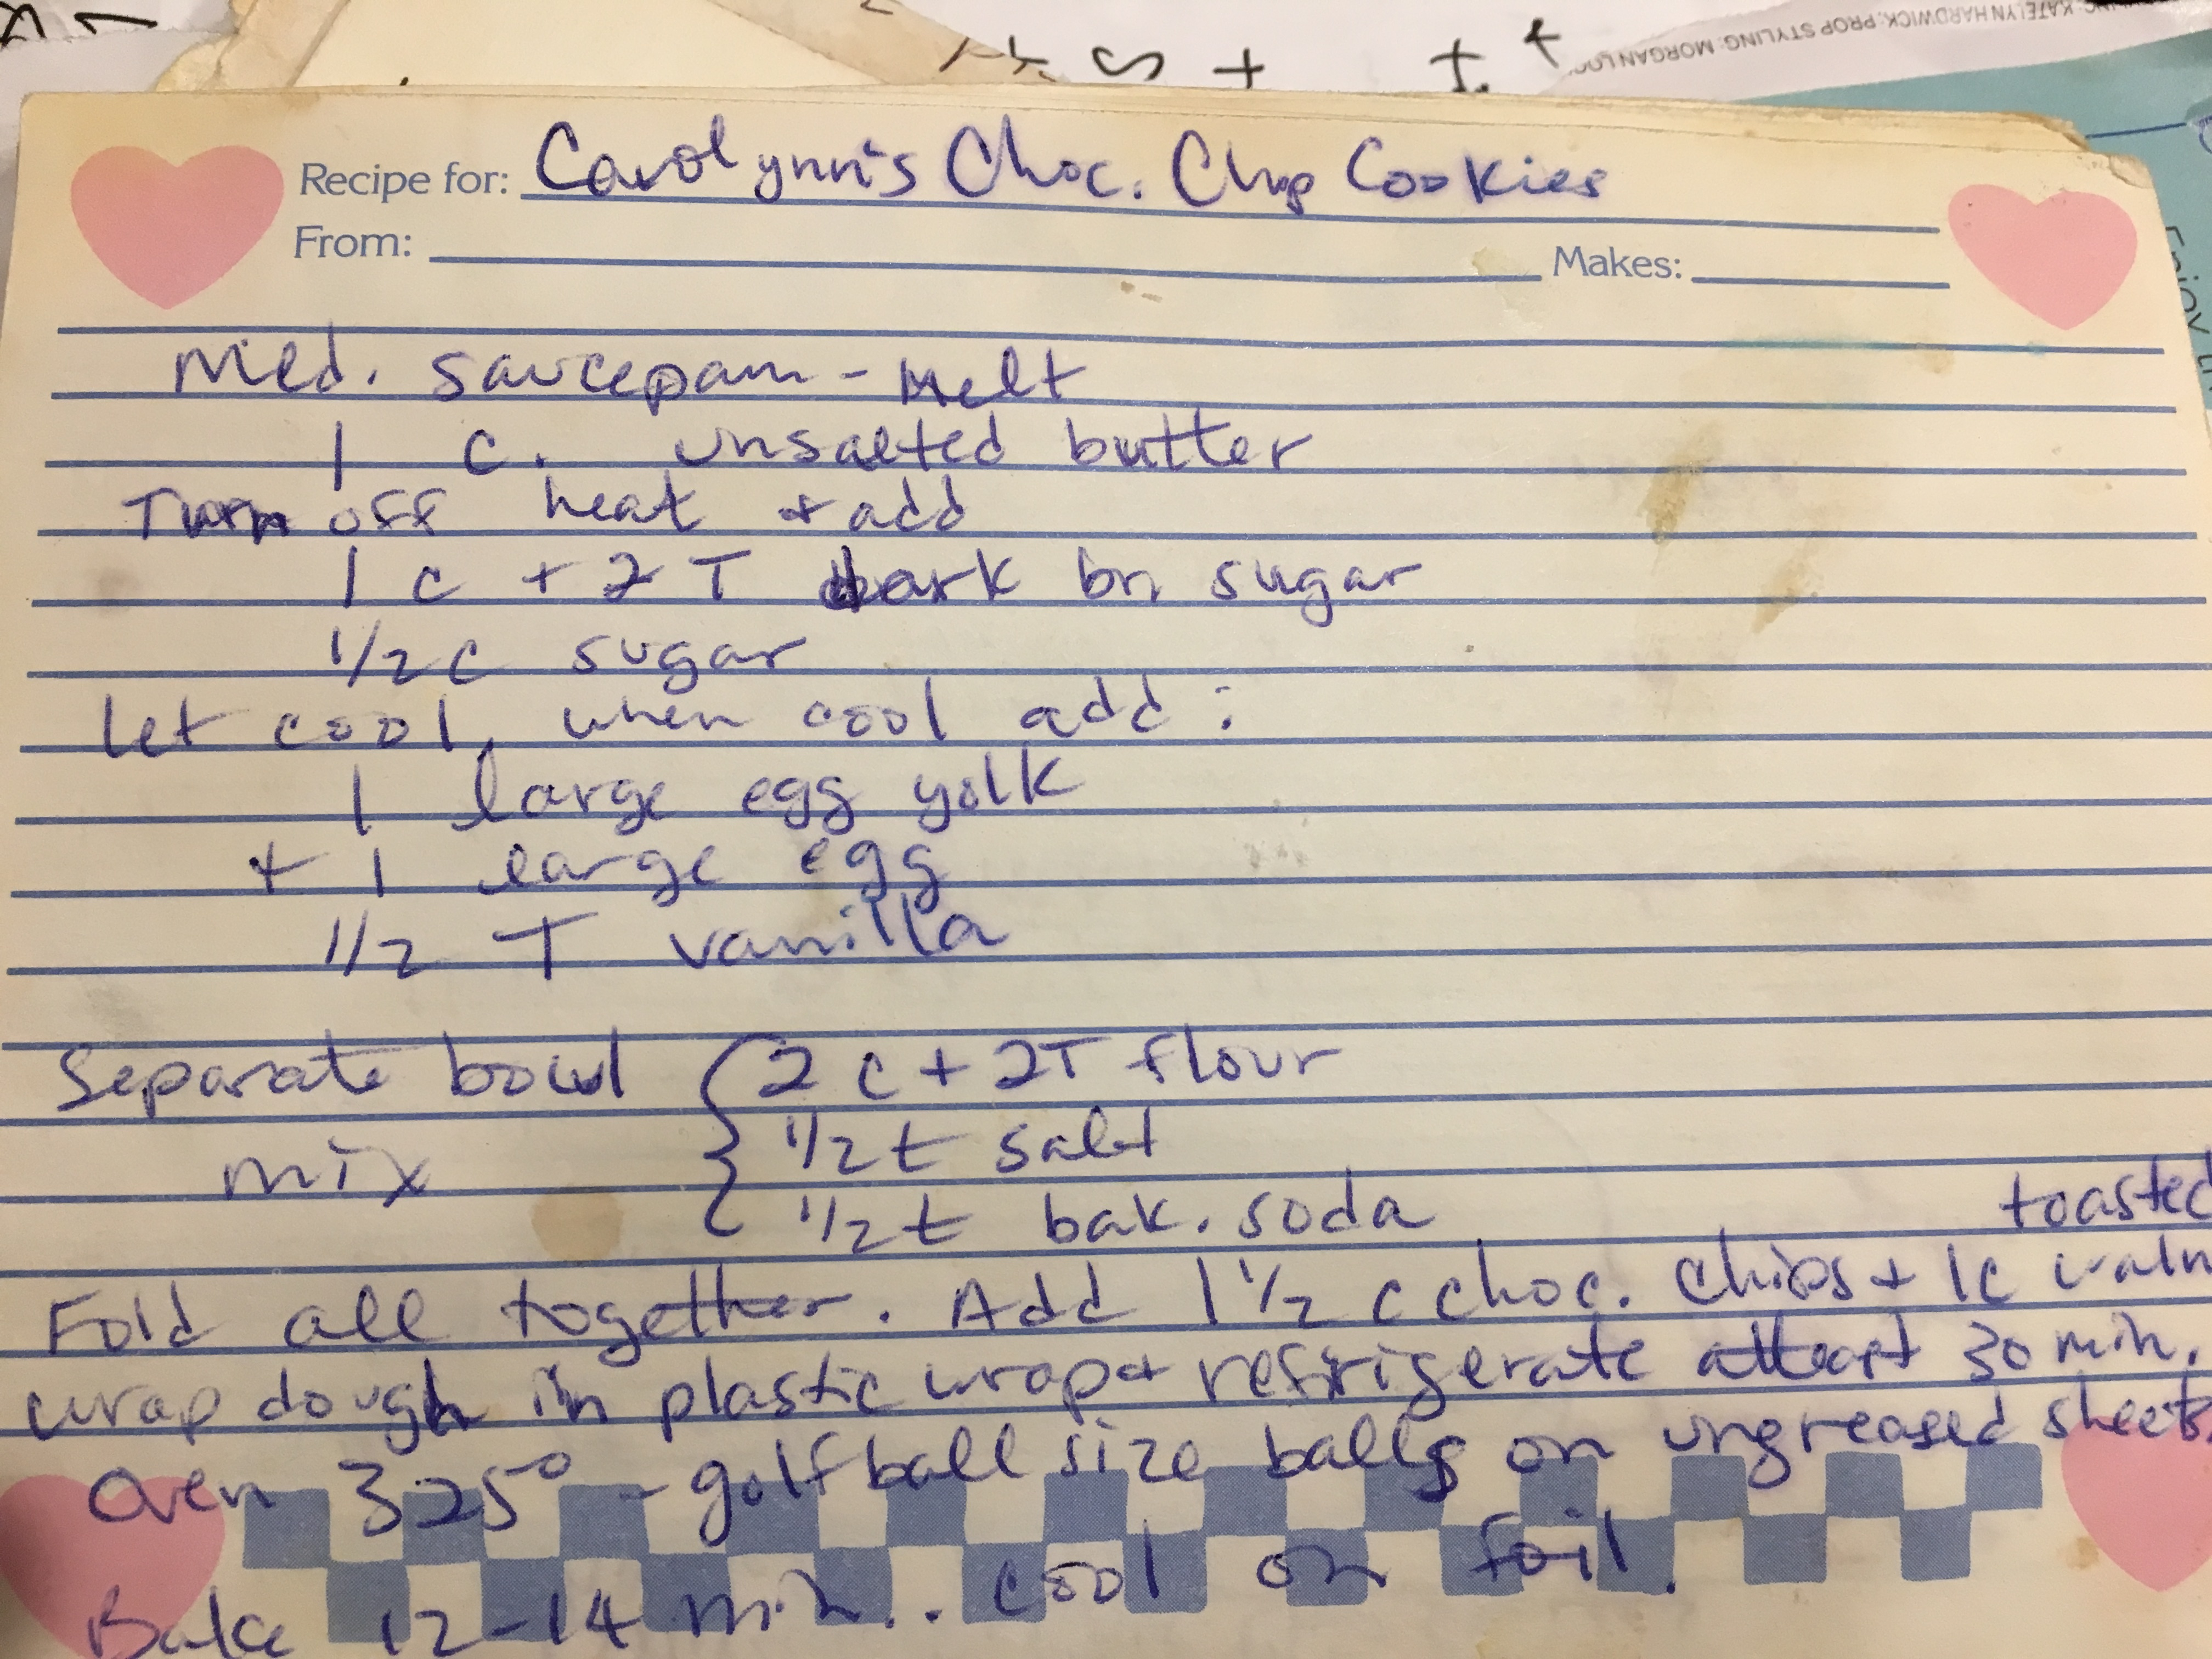 KATELYN HARDWICK; PROP STYLING: MORGAN
Recipe for: Carolynn's Choc. Chip Cookies
From: Makes:
Med. saucepan - Melt
1 c. unsalted butter
Turn off heat + add
1 c + 2 T dark bn sugar
1/2 c sugar
Let cool, when cool add:
1 large egg yolk
+ 1 large egg
1/2 T vanilla
Separate bowl { 2 c + 2T flour
mix 1/2 t salt
1/2 t bak. soda
toasted
Fold all together. Add 1 1/2 c choc. chips + 1c waln
wrap dough in plastic wrap + refrigerate atleast 30 min.
Oven 325° - golf ball size balls on ungreased sheets.
Bake 12-14 min.. cool on foil.